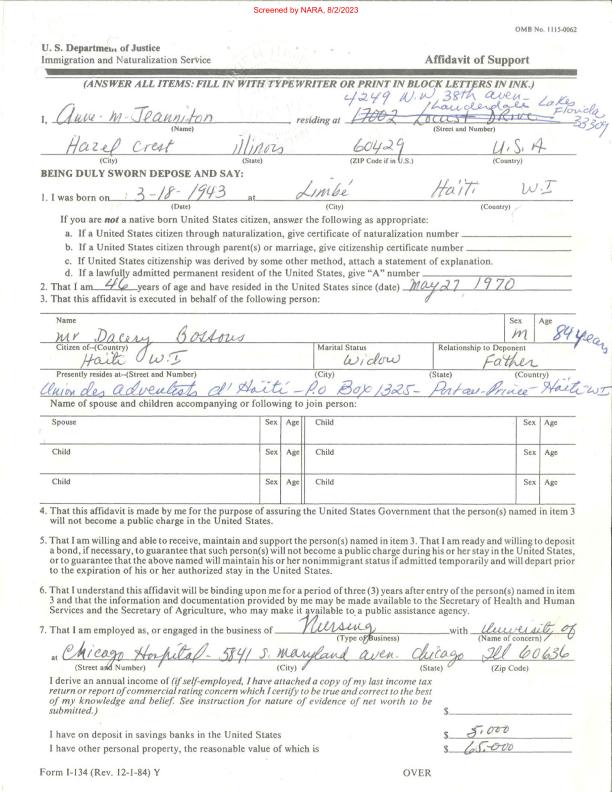 Screened by NARA, 8/2/2023
OMB No. 1115-0062
U. S. Department of Justice
Immigration and Naturalization Service Affidavit of Support
(ANSWER ALL ITEMS: FILL IN WITH TYPEWRITER OR PRINT IN BLOCK LETTERS IN INK.)
4249 N.W 38th aven-
Lauderdale Lakes
Florida
33309
I, Anne-M-Jeanniton, residing at 17002 Locust Drive
(Name) (Street and Number)
Hazel Crest Illinois 60429 U.S.A
(City) (State) (ZIP Code if in U.S.) (Country)
BEING DULY SWORN DEPOSE AND SAY:
1. I was born on 3-18-1943 at Limbé Haïti W.I
(Date) (City) (Country)
If you are not a native born United States citizen, answer the following as appropriate:
a. If a United States citizen through naturalization, give certificate of naturalization number
b. If a United States citizen through parent(s) or marriage, give citizenship certificate number
c. If United States citizenship was derived by some other method, attach a statement of explanation.
d. If a lawfully admitted permanent resident of the United States, give "A" number
2. That I am 46 years of age and have resided in the United States since (date) May 27 1970
3. That this affidavit is executed in behalf of the following person:
Name Sex Age
Mr Dacery Bossous M 84 years
Citizen of--(Country) Marital Status Relationship to Deponent
Haïti W.I Widow Father
Presently resides at--(Street and Number) (City) (State) (Country)
Union des adventists d'Haïti - P.O Box 1325 - Port au-Prince - Haïti W I
Name of spouse and children accompanying or following to join person:
Spouse Sex Age Child Sex Age
Child Sex Age Child Sex Age
Child Sex Age Child Sex Age
4. That this affidavit is made by me for the purpose of assuring the United States Government that the person(s) named in item 3
will not become a public charge in the United States.
5. That I am willing and able to receive, maintain and support the person(s) named in item 3. That I am ready and willing to deposit
a bond, if necessary, to guarantee that such person(s) will not become a public charge during his or her stay in the United States,
or to guarantee that the above named will maintain his or her nonimmigrant status if admitted temporarily and will depart
prior to the expiration of his or her authorized stay in the United States.
6. That I understand this affidavit will be binding upon me for a period of three (3) years after entry of the person(s) named in item
3 and that the information and documentation provided by me may be made available to the Secretary of Health and Human
Services and the Secretary of Agriculture, who may make it available to a public assistance agency.
7. That I am employed as, or engaged in the business of Nursing with University of
(Type of Business) (Name of concern)
at Chicago Hospital - 5841 S. Maryland aven. Chicago Ill 60636
(Street and Number) (City) (State) (Zip Code)
I derive an annual income of (if self-employed, I have attached a copy of my last income tax
return or report of commercial rating concern which I certify to be true and correct to the best
of my knowledge and belief. See instruction for nature of evidence of net worth to be
submitted.) $
I have on deposit in savings banks in the United States $ 5.000
I have other personal property, the reasonable value of which is $ 65.000
Form I-134 (Rev. 12-1-84) Y OVER